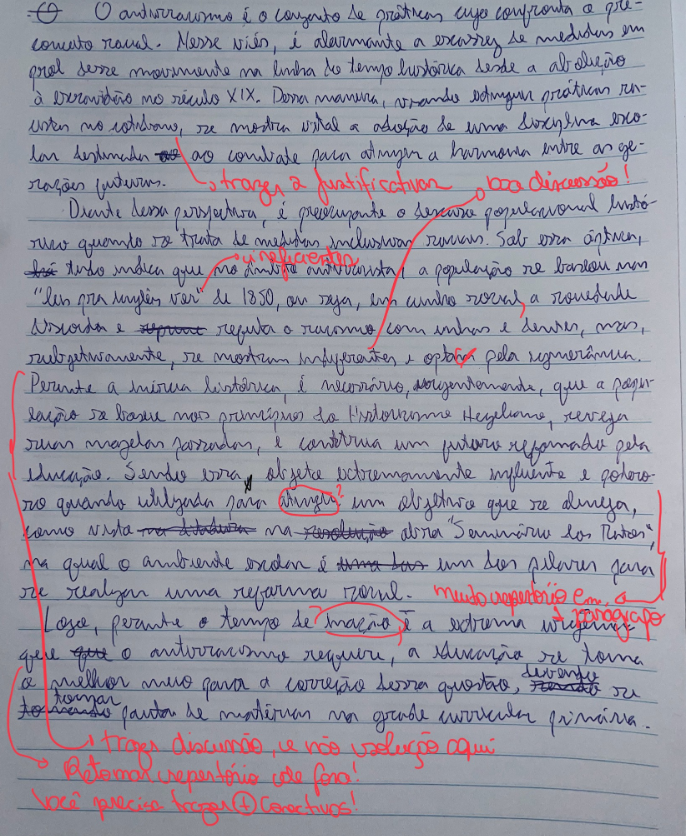 O antirracismo é o conjunto de práticas cujo confronta o pre-
conceito racial. Nesse viés, é alarmante a escassez de medidas em
prol desse movimento na linha do tempo histórica desde a abolição
à escravidão no século XIX. Dessa maneira, visando extinguir práticas ra-
cistas no cotidiano, se mostra vital a adoção de uma disciplina esco-
lar destinada ao combate para atingir a harmonia entre as ge-
rações futuras.
trazer 2 justificativas
boa discussão!
Diante dessa perspectiva, é preocupante o descaso populacional histó-
rico quando se trata de medidas inclusivas raciais. Sob essa óptica,
ineficientes
tudo indica que no âmbito antirracista, a população se baseou nas
"leis pra inglês ver" de 1850, ou seja, em cunho racial, a sociedade
discorda e refuta o racismo com unhas e dentes, mas,
subjetivamente, se mostram indiferentes e optam pela ignorância.
Perante a inércia histórica, é necessário, urgentemente, que a popu-
lação se baseie nos princípios do Historicismo Hegeliano, reveja
suas mazelas passadas, e construa um futuro reformado pela
educação. Sendo essa, objeto extremamente influente e podero-
so quando utilizada para atingir? um objetivo que se almeja,
como visto na obra "Seminário dos Ratos",
na qual o ambiente escolar é um dos pilares para
se realizar uma reforma racial.
muito repertório em
1 parágrafo
Logo, perante o tempo de inação? e a extrema urgência
que o antirracismo requere, a educação se torna
o melhor meio para a correção dessa questão, devendo se
tornar pauta de matérias na grade curricular primária.
trazer discussão, e não solução aqui
Retomar repertório cole fora!
Você precisa trazer + conectivos!